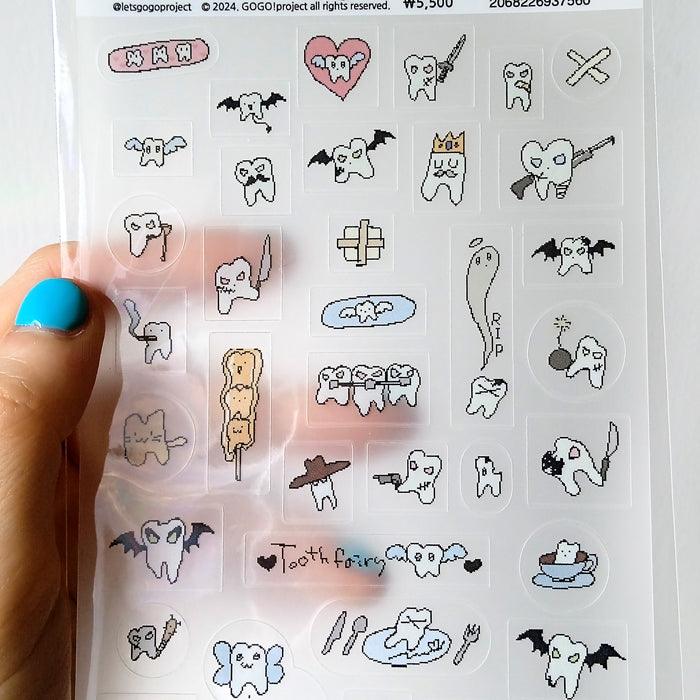 @letsgogoproject © 2024. GOGO!project all rights reserved. ₩5,500 2068226937560
RIP
Tooth fairy